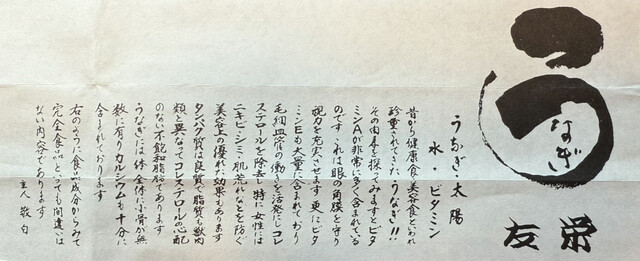 うなぎ
栄友
うなぎ・太陽
水・ビタミン
昔から健康食・美容食といわれ
珍重されてきたうなぎ!!
その内身を探ってみますとビタ
ミンAが非常に多く含まれている
のです これは眼の角膜を守り
視力を充実させます 更にビタ
ミンEも大量に含まれており
毛細血管の働きを活発にしコレ
ステロールを除去し特に女性には
ニキビ・シミ・肌荒れなどを防ぐ
美容上の優れた効果もあります
タンパク質は良質で脂質も獣肉
類と異なってコレステロールの心配
のない不飽和脂肪であります
うなぎには体全体に小骨が無
数に有りカルシウムも十分に
含まれております
右のように食品成分からみて
完全食品といっても間違いは
ない内容であります
主人 敬白